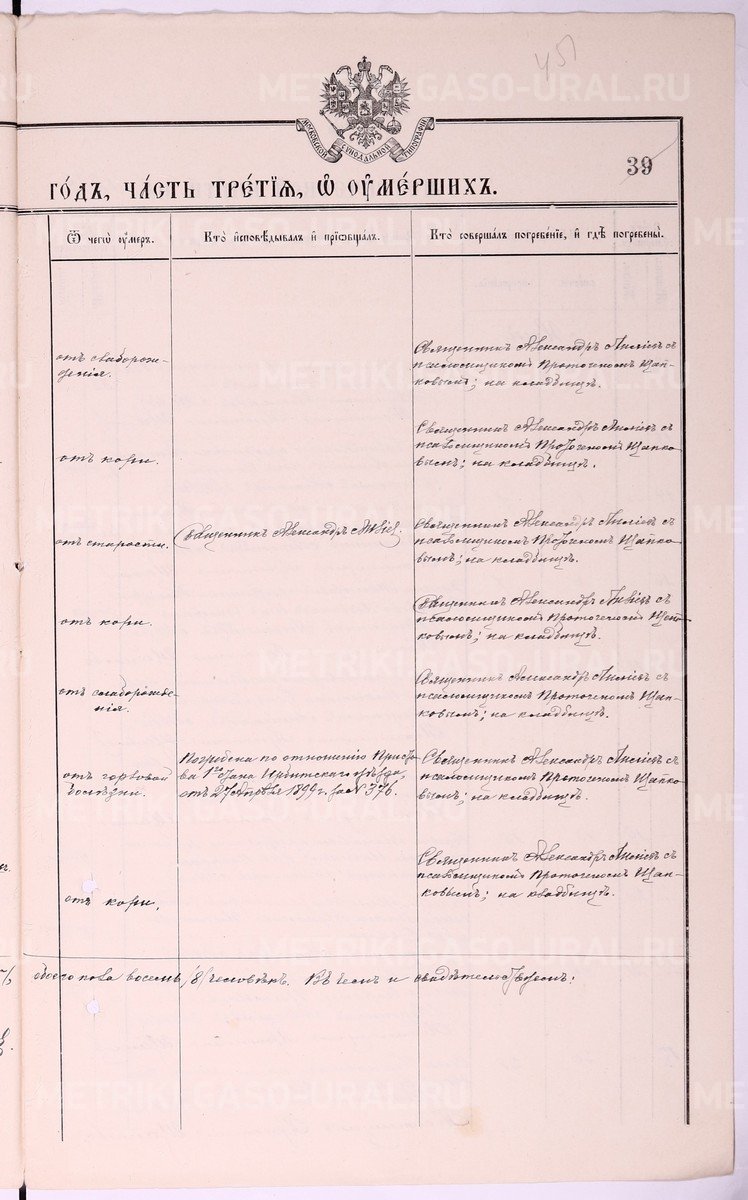 451
МОСКОВСКОЙ СѴНОДАЛЬНОЙ ТИПОГРАФІИ
39
ГО́ДЪ, ЧА́СТЬ ТРЕ́ТІѦ, Ѽ ОУ҆МЕ́РШИХЪ.
Ѿ чегѡ̀ оу҆́меръ.
Кто̀ и҆сповѣ́дывалъ и҆ прїѡбща́лъ.
Кто̀ соверша́лъ погребе́нїе, и҆ гдѣ̀ погребены̀.
отъ слаборож-
денія.
Священникъ Александръ съ
псаломщикомъ Протогеномъ Щап-
ковымъ; на кладбищѣ.
отъ кори.
Священникъ Александръ съ
псаломщикомъ Протогеномъ Щапко-
вымъ; на кладбищѣ.
отъ старости.
Священникъ Александръ
Священникъ Александръ съ
псаломщикомъ Протогеномъ Щапко-
вымъ; на кладбищѣ.
отъ кори.
Священникъ Александръ съ
псаломщикомъ Протогеномъ Щап-
ковымъ; на кладбищѣ.
отъ слаборожде-
нія.
Священникъ Александръ съ
псаломщикомъ Протогеномъ Щап-
ковымъ; на кладбищѣ.
отъ горловой
болѣзни.
Погребена по отношенію Приста-
ва 1го стана Ирбитскаго уѣзда,
отъ 27 Апрѣля 1899 г. за № 376.
Священникъ Александръ съ
псаломщикомъ Протогеномъ Щапко-
вымъ; на кладбищѣ.
отъ кори.
Священникъ Александръ съ
псаломщикомъ Протогеномъ Щап-
ковымъ; на кладбищѣ.
обоего пола восемь /8/ человѣкъ. Въ чемъ и свидѣтельствуемъ:
METRIKI.GASO-URAL.RU